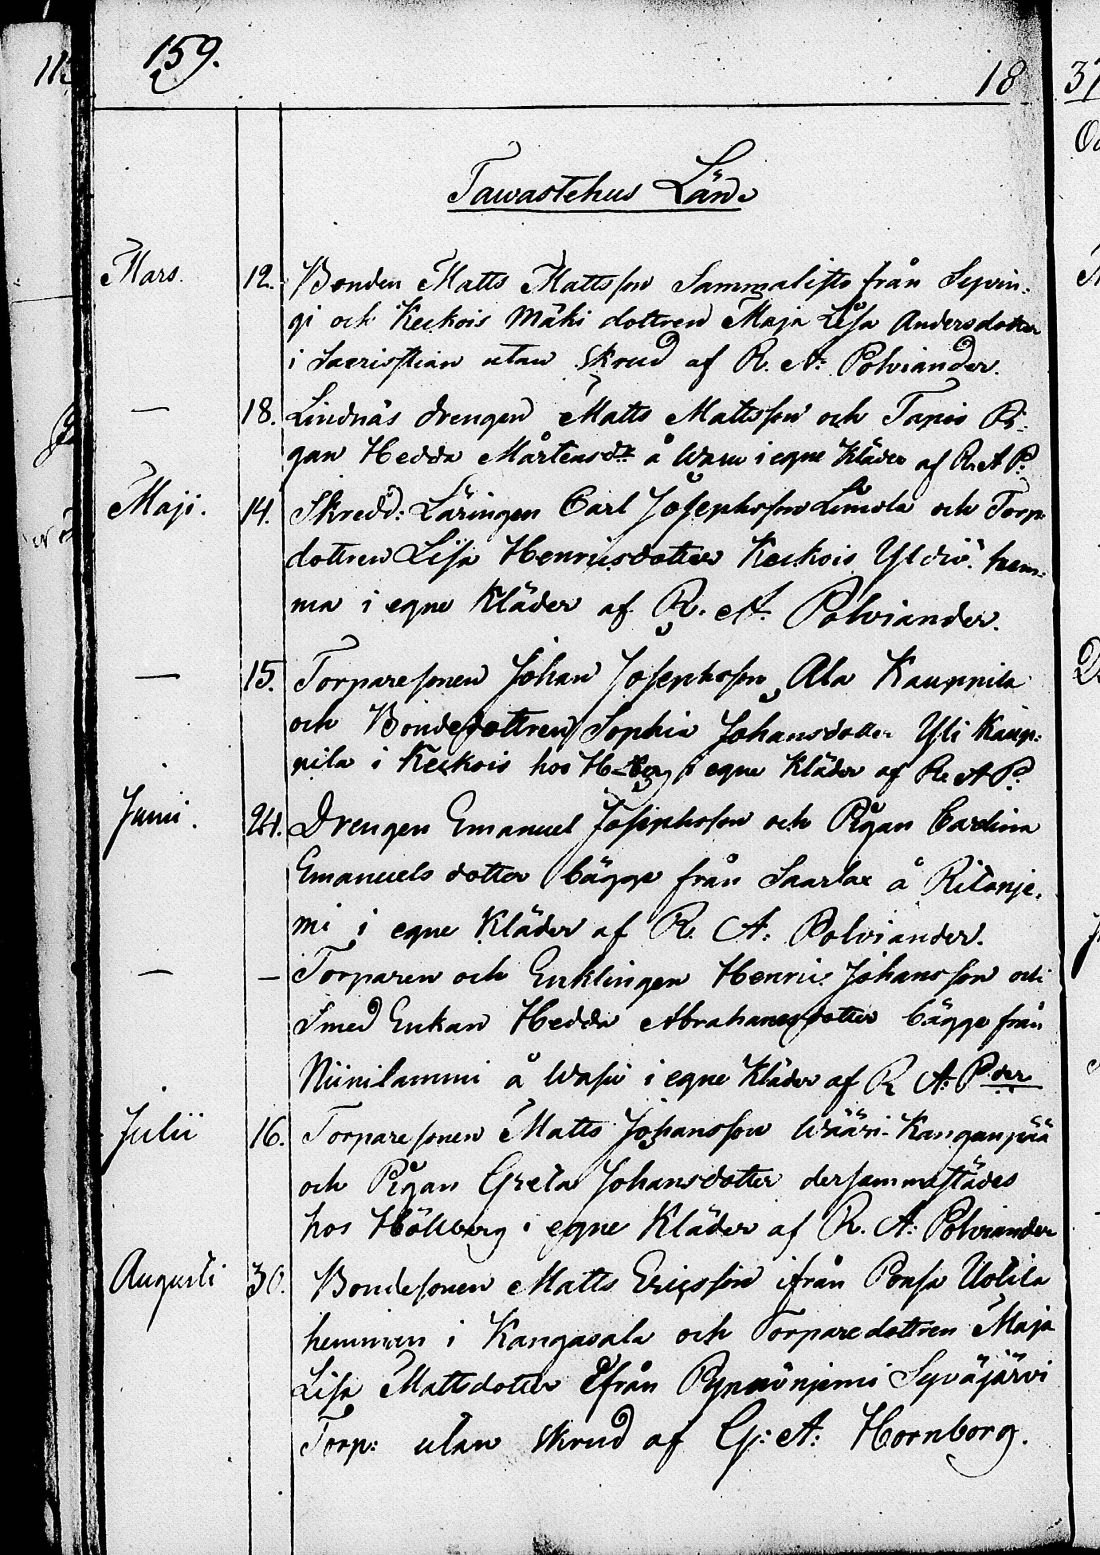 159.
18
Tawastehus Län
Mars. 12. Bonden Matts Mattsson Sammalisto från Syvin-
gi och Keckois Mäki dottren Maja Lisa Andersdotter
i Sacristian utan skrud af R. A: Polviander.
— 18. Lindnäs drengen Matts Mattsson och Tapio Pi-
gan Hedda Mårtensdr å Waru i egne Kläder af R. A P:
Maji. 14. Skredd: Läringen Carl Josephsson och Torp
dottren Lisa Henricsdotter Keckois Yldiö hem-
ma i egne Kläder af R. A. Polviander.
— 15. Torparesonen Johan Josephsson Ala Kauppila
och Bondedottren Sophia Johansdotter Yli Kaup-
pila i Keckois hos i egne Kläder af R. A P:
Junii. 24. Drengen Emanuel Josephsson och Pigan Carolina
Emanuels dotter bägge från Saarlax å Ritanje-
mi i egne Kläder af R. A: Polviander.
— — Torparen och Enklingen Henric Johansson och
Smed Enkan Hedda Abrahamsdotter bägge från
Niinilammi å Wasu i egne Kläder af R A: P:der
Julii 16. Torparesonen Matts Johansson Wääri-Kanganpää
och Pigan Greta Johansdotter dersammastädes
hos Hällberg i egne Kläder af R. A: Polviander
Augusti 30. Bondesonen Matts Ericsson ifrån Ponsa Uotila
hemman i Kangasala och Torparedottren Maja
Lisa Mattsdotter ifrån Pynnönjemi Syväjärvi
Torp: utan skrud af G: A: Hornborg.